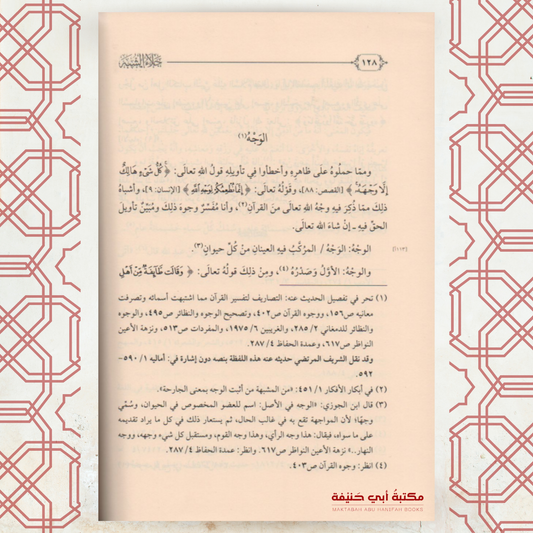 ١٢٨
الوَجْهُ(١)
وممّا حملُوهُ علَى ظاهرِهِ وأخطأُوا فِي تأويلِهِ قولُ اللهِ تعالَى: ﴿كُلُّ شَيْءٍ هَالِكٌ
إِلَّا وَجْهَهُ﴾ [القصص: ٨٨]، وقَوْلُهُ تعالَى: ﴿إِنَّمَا نُطْعِمُكُمْ لِوَجْهِ اللَّهِ﴾ [الإنسان: ٩]، وأشباهُ
ذلكَ ممّا ذُكِرَ فيهِ وجْهُ اللهِ تعالَى منَ القرآنِ(٢)، وأنا مُفَسِّرٌ وجوهَ ذلكَ ومُبَيِّنٌ تأويلَ
الحقِّ فيهِ ـ إنْ شاءَ اللهُ تعالَى.
الوجْهُ: الوَجْهُ / المركَّبُ فيهِ العينانِ مِنْ كُلِّ حيوانٍ(٣).
والوجْهُ: الأوَّلُ وَصَدْرُهُ(٤)، ومِنْ ذلكَ قولُهُ تعالَى: ﴿وَقَالَت طَّآئِفَةٌ مِّنْ أَهْلِ
(١) تحر في تفصيل الحديث عنه: التصاريف لتفسير القرآن مما اشتبهت أسمائه وتصرفت
معانيه ص١٥٦، ووجوه القرآن ص٤٠٢، وتصحيح الوجوه والنظائر ص٤٩٥، والوجوه
والنظائر للدمغاني ٢/ ٢٨٥، والغريبين ٦/ ١٩٧٥، والمفردات ص٥١٣، ونزهة الأعين
النواظر ص٦١٧، وعمدة الحفاظ ٤/ ٢٨٧.
وقد نقل الشريف المرتضي حديثه عنه هذه اللفظة بنصه دون إشارة في: أماليه ١/ ٥٩٠ ـ
٥٩٢.
(٢) في أبكار الأفكار ١/ ٤٥١: «من المشبهة من أثبت الوجه بمعنى الجارحة».
(٣) قال ابن الجوزي: «الوجه في الأصل: اسم للعضو المخصوص في الحيوان، وسُمِّي
وجهًا؛ لأن المواجهة تقع به في غالب الحال، ثم يستعار ذلك في كل ما يراد تقديمه
على ما سواه، فيقال: هذا وجه الرأي، وهذا وجه القوم، ومستقبل كل شيء وجهه، ووجه
النهار..» نزهة الأعين النواظر ص٦١٧. وانظر: عمدة الحفاظ ٤/ ٢٨٧.
(٤) انظر: وجوه القرآن ص٤٠٣.
مكتبة أبي حنيفة
MAKTABAH ABU HANIFAH BOOKS